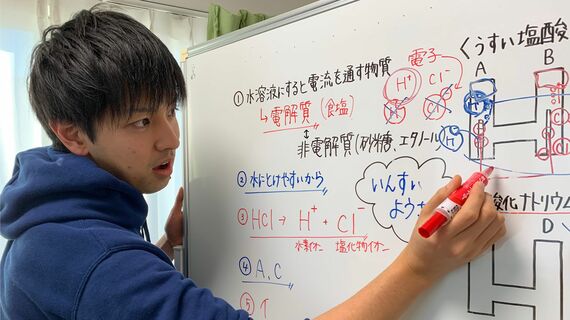 ①水溶液にすると電流を通す物質
↳電解質(食塩)
↕
非電解質(砂糖、エタノール)
②水にとけやすいから
③HCl→H⁺+Cl⁻
水素イオン 塩化物イオン
④A、C
⑤
電子
H⁺ Cl⁻
いんすい
よう
くうすい塩酸
A B
H
酸化ナトリウム
D